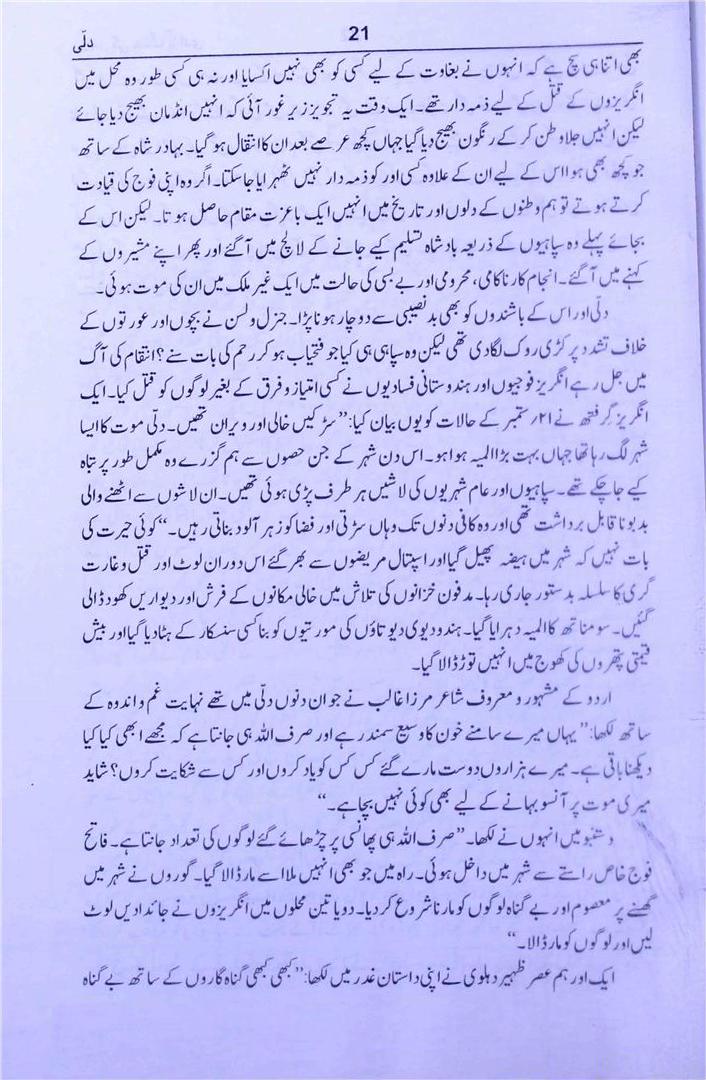 دلّی
21
بھی اتنا ہی سچ ہے کہ انہوں نے بغاوت کے لیے کسی کو بھی نہیں اکسایا اور نہ ہی کسی طور وہ محل میں
انگریزوں کے قتل کے لیے ذمہ دار تھے۔ ایک وقت یہ تجویز زیر غور آئی کہ انہیں انڈمان بھیج دیا جائے
لیکن انہیں جلا وطن کر کے رنگون بھیج دیا گیا جہاں کچھ عرصے بعد ان کا انتقال ہو گیا۔ بہادر شاہ کے ساتھ
جو کچھ بھی ہوا اس کے لیے ان کے علاوہ کسی اور کو ذمہ دار نہیں ٹھہرایا جا سکتا۔ اگر وہ اپنی فوج کی قیادت
کرتے ہوتے تو ہم وطنوں کے دلوں اور تاریخ میں انہیں ایک باعزت مقام حاصل ہوتا۔ لیکن اس کے
بجائے پہلے وہ سپاہیوں کے ذریعہ بادشاہ تسلیم کیے جانے کے لالچ میں آ گئے اور پھر اپنے مشیروں کے
کہنے میں آ گئے۔ انجام کار ناکامی، محرومی اور بے بسی کی حالت میں ایک غیر ملک میں ان کی موت ہوئی۔
دلّی اور اس کے باشندوں کو بھی بدنصیبی سے دوچار ہونا پڑا۔ جنرل ولسن نے بچوں اور عورتوں کے
خلاف تشدد پر کڑی روک لگا دی تھی لیکن وہ سپاہی ہی کیا جو فتحیاب ہو کر رحم کی بات سنے؟ انتقام کی آگ
میں جل رہے انگریز فوجیوں اور ہندوستانی فسادیوں نے کسی امتیاز و فرق کے بغیر لوگوں کو قتل کیا۔ ایک
انگریز گرفتھ نے ۲۱؍ ستمبر کے حالات کو یوں بیان کیا: ’’سڑکیں خالی اور ویران تھیں۔ دلّی موت کا ایسا
شہر لگ رہا تھا جہاں بہت بڑا المیہ ہوا ہو۔ اس دن شہر کے جن حصوں سے ہم گزرے وہ مکمل طور پر تباہ
کیے جا چکے تھے۔ سپاہیوں اور عام شہریوں کی لاشیں ہر طرف پڑی ہوئی تھیں۔ ان لاشوں سے اٹھنے والی
بدبو ناقابل برداشت تھی اور وہ کافی دنوں تک وہاں سڑتی اور فضا کو زہر آلود بناتی رہیں۔‘‘ کوئی حیرت کی
بات نہیں کہ شہر میں ہیضہ پھیل گیا اور اسپتال مریضوں سے بھر گئے اس دوران لوٹ اور قتل و غارت
گری کا سلسلہ بدستور جاری رہا۔ مدفون خزانوں کی تلاش میں خالی مکانوں کے فرش اور دیواریں کھود ڈالی
گئیں۔ سومناتھ کا المیہ دہرایا گیا۔ ہندو دیوی دیوتاؤں کی مورتیوں کو بنا کسی سنسکار کے ہٹا دیا گیا اور بیش
قیمتی پتھروں کی کھوج میں انہیں توڑ ڈالا گیا۔
اردو کے مشہور و معروف شاعر مرزا غالب نے جو ان دنوں دلّی میں تھے نہایت غم و اندوہ کے
ساتھ لکھا: ’’یہاں میرے سامنے خون کا وسیع سمندر ہے اور صرف اللہ ہی جانتا ہے کہ مجھے ابھی کیا کیا
دیکھنا باقی ہے۔ میرے ہزاروں دوست مارے گئے کس کس کو یاد کروں اور کس سے شکایت کروں؟ شاید
میری موت پر آنسو بہانے کے لیے بھی کوئی نہیں بچا ہے۔‘‘
دستنبو میں انہوں نے لکھا۔ ’’صرف اللہ ہی پھانسی پر چڑھائے گئے لوگوں کی تعداد جانتا ہے۔ فاتح
فوج خاص راستے سے شہر میں داخل ہوئی۔ راہ میں جو بھی انہیں ملا اسے مار ڈالا گیا۔ گوروں نے شہر میں
گھسنے پر معصوم اور بے گناہ لوگوں کو مارنا شروع کر دیا۔ دو یا تین محلوں میں انگریزوں نے جائدادیں لوٹ
لیں اور لوگوں کو مار ڈالا۔‘‘
ایک اور ہم عصر ظہیر دہلوی نے اپنی داستان غدر میں لکھا: ’’کبھی کبھی گناہ گاروں کے ساتھ بے گناہ